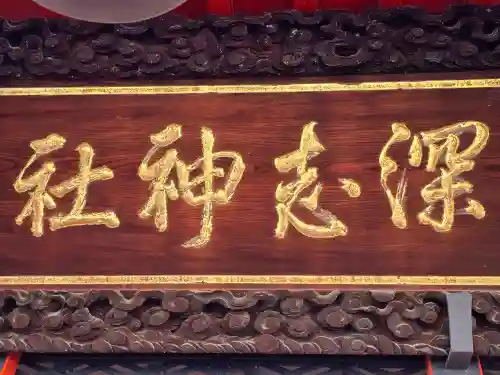 深志神社